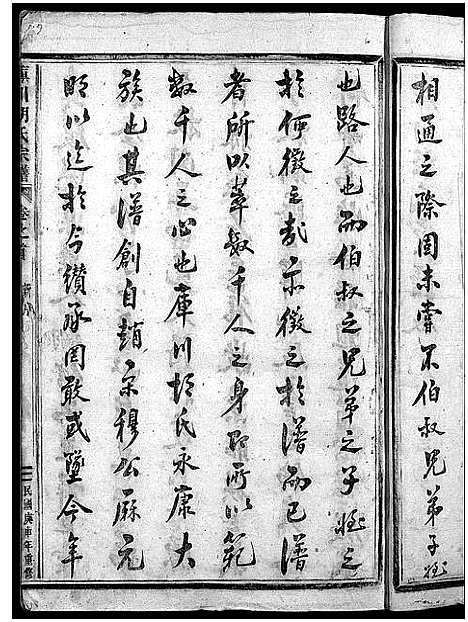 相通之際固未嘗不伯叔兄弟子姪
也路人也而伯叔之兄弟之子姪之
於何徵之哉亦徵之於譜而已譜
者所以萃數千人之身即所以範
數千人之心也庫川胡氏永康大
族也其譜創自趙宋穆公厥元
明以迄於今纘承罔敢或墜今年
庫川胡氏宗譜 卷之首
民國庚申年重修